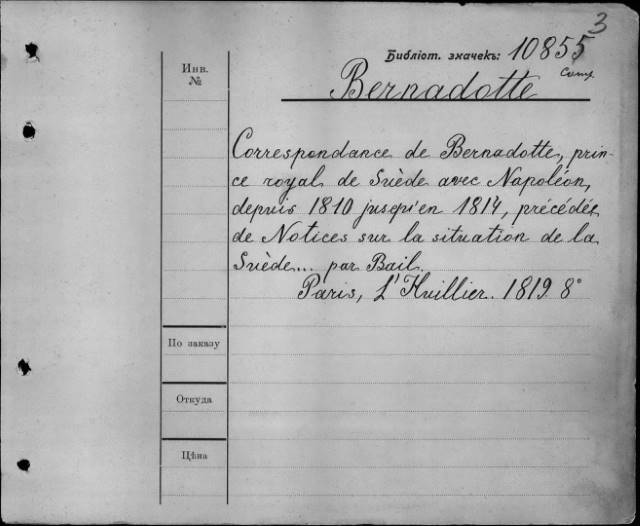 3
Библіот. значекъ: 10855
Инв.
№
Bernadotte
Correspondance de Bernadotte, prin-
ce royal de Suède avec Napoléon,
depuis 1810 jusqu'en 1814, précédée
de Notices sur la situation de la
Suède... par Bail.
Paris, L'Huillier. 1819 8°
По заказу
Откуда
Цѣна